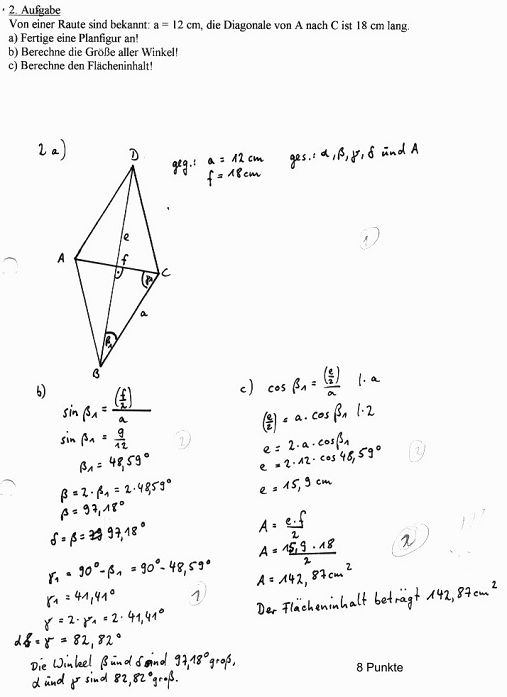 2. Aufgabe
Von einer Raute sind bekannt: a = 12 cm, die Diagonale von A nach C ist 18 cm lang.
a) Fertige eine Planfigur an!
b) Berechne die Größe aller Winkel!
c) Berechne den Flächeninhalt!
2 a)
geg.: a = 12 cm
f = 18 cm
ges.: α, β, γ, δ und A
D
e
A
f
C
γ1
a
β1
B
1
b)
sin β1 = (f/2)/a
sin β1 = 9/12
β1 = 48,59°
β = 2·β1 = 2·48,59°
β = 97,18°
δ = β = 97,18°
γ1 = 90° - β1 = 90° - 48,59°
γ1 = 41,41°
γ = 2·γ1 = 2·41,41°
α = γ = 82,82°
Die Winkel β und δ sind 97,18° groß,
α und γ sind 82,82° groß.
1
c) cos β1 = (e/2)/a |·a
(e/2) = a·cos β1 |·2
e = 2·a·cos β1
e = 2·12·cos 48,59°
e = 15,9 cm
A = e·f/2
A = 15,9·18/2
A = 142,87 cm²
Der Flächeninhalt beträgt 142,87 cm²
2
8 Punkte